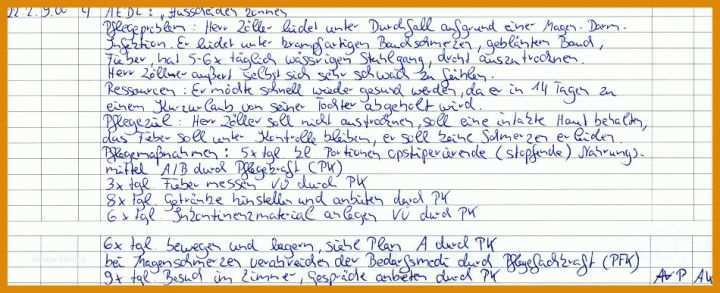 22.2. 9.00 4 AEDL: „Ausscheiden können
Pflegeproblem: Herr Zöller leidet unter Durchfall aufgrund einer Magen-Darm-
Infektion. Er leidet unter krampfartigen Bauchschmerzen, geblähten Bauch,
Fieber, hat 5-6x täglich wässrigen Stuhlgang, droht auszutrocknen.
Herr Zöllner äußert selbst sich sehr schwach zu fühlen.
Ressourcen: Er möchte schnell wieder gesund werden, da er in 14 Tagen zu
einem Kurzurlaub von seiner Tochter abgeholt wird.
Pflegeziel: Herr Zöller soll nicht austrocknen, soll eine intakte Haut behalten,
das Fieber soll unter Kontrolle bleiben, er soll keine Schmerzen erleiden.
Pflegemaßnahmen: 5x tgl. kl. Portionen opstipierende (stopfende) Nahrungs-
mittel A/B durch Pflegekraft (PK)
3x tgl. Fieber messen VÜ durch PK
8x tgl. Getränke hinstellen und anbieten durch PK
6x tgl. Inkontinenzmaterial anlegen VÜ durch PK
6x tgl. bewegen und lagern, siehe Plan A durch PK
bei Magenschmerzen verabreichen der Bedarfsmedi durch Pflegefachkraft (PFK)
9x tgl. Besuch im Zimmer, Gespräche anbieten durch PK